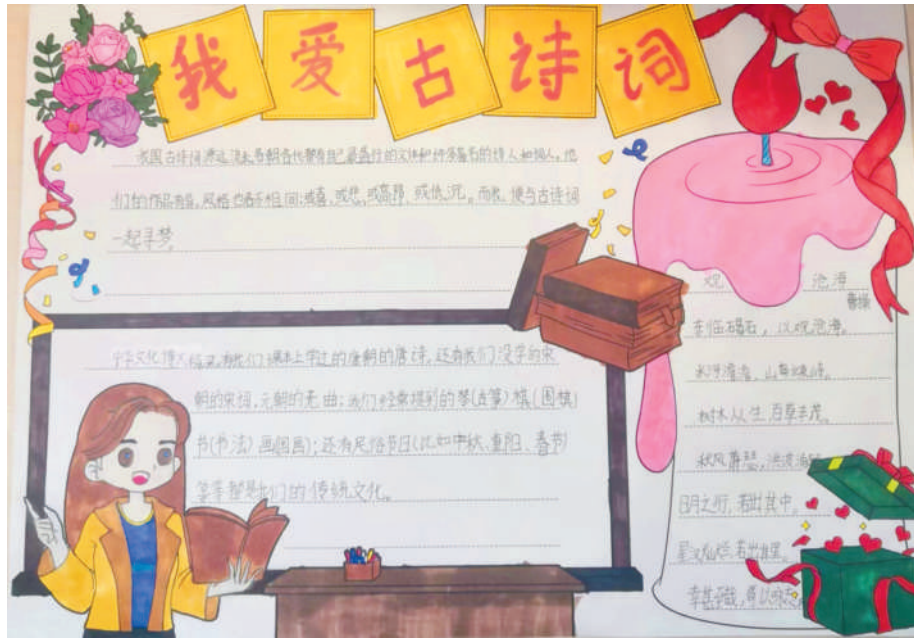 我爱古诗词
我国古诗词源远流长,各朝各代都有自己最盛行的文体和许多著名的诗人和词人。他
们的作品有喜,风格也各不相同:或喜、或悲,或高昂、或低沉。而我,便与古诗词
一起寻梦。
中华文化博大精深,有我们课本上学过的唐朝的唐诗,还有我们没学的宋
朝的宋词,元朝的元曲;我们经常提到的琴(古筝)棋(围棋)
书(书法)画(国画);还有民俗节日(比如中秋、重阳、春节)
等等都是我们的传统文化。
观 沧海
曹操
东临碣石,以观沧海。
水何澹澹,山岛竦峙。
树木丛生,百草丰茂。
秋风萧瑟,洪波涌
日月之行,若出其中。
星汉灿烂,若出其里。
幸甚至哉,歌以咏志